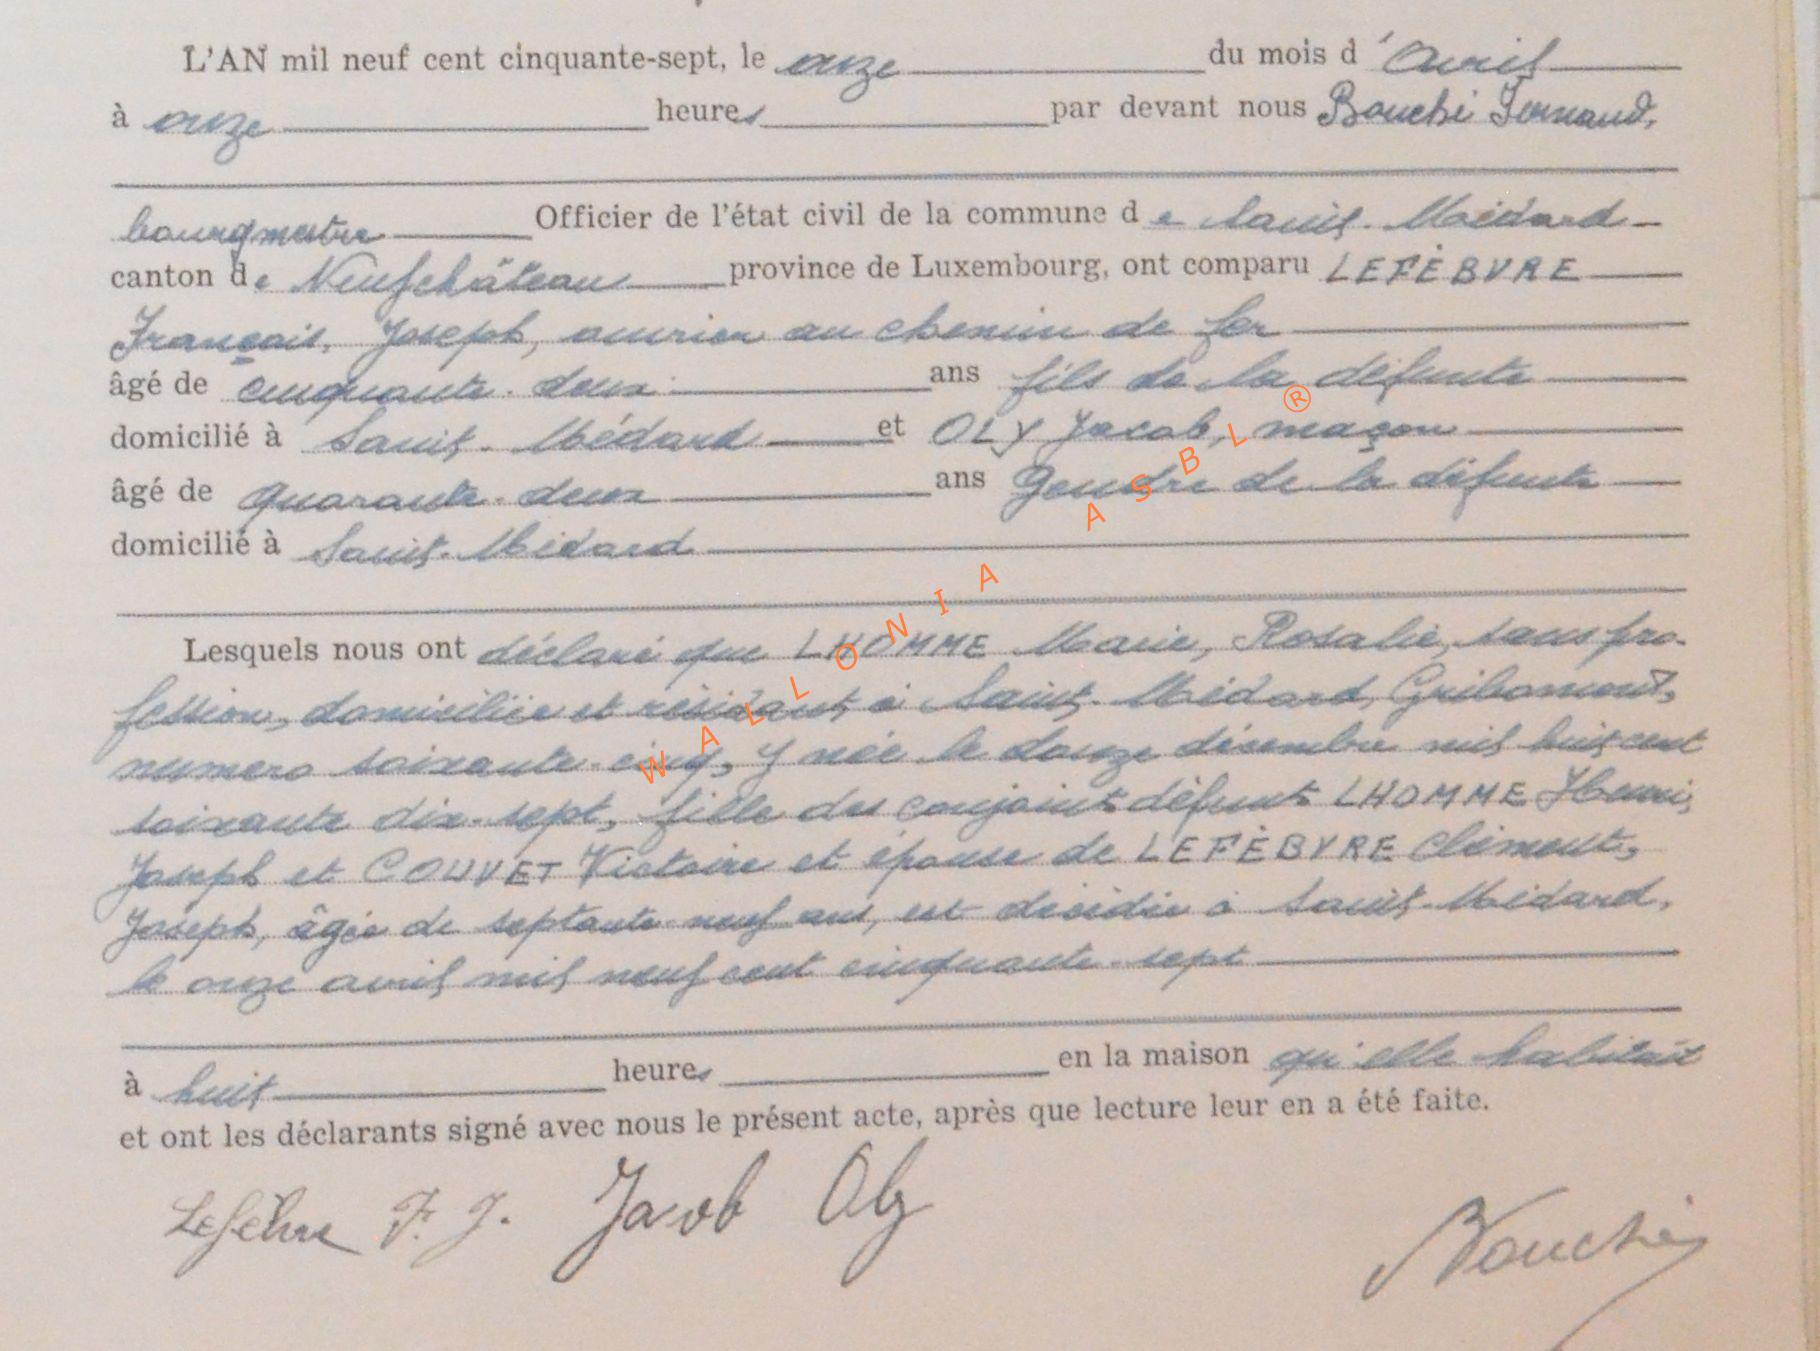 L'AN mil neuf cent cinquante-sept, le onze du mois d'Avril
à onze heures par devant nous Bouché Fernand,
bourgmestre Officier de l'état civil de la commune de Saint-Médard
canton de Neufchâteau province de Luxembourg, ont comparu LEFÈBVRE
François, Joseph, ouvrier au chemin de fer
âgé de cinquante-deux ans fils de la défunte
domicilié à Saint-Médard et OLY Jacob, maçon
âgé de quarante-deux ans Gendre de la défunte
domicilié à Saint-Médard
Lesquels nous ont déclaré que LHOMME Marie, Rosalie, sans pro-
fession, domiciliée et résidant à Saint-Médard, Gribomont,
numero soixante-cinq, y née le douze décembre mil huit cent
soixante dix-sept, fille des conjoints défunts LHOMME Henri,
Joseph et COUVET Victoire et épouse de LEFÈBVRE Clément,
Joseph, âgée de septante-neuf ans, est décédée à Saint-Médard,
le onze avril mil neuf cent cinquante-sept
à huit heures en la maison qu'elle habitait
et ont les déclarants signé avec nous le présent acte, après que lecture leur en a été faite.
Lefèbvre F. J. Jacob Oly
Bouché
WALLONIA ASBL ®